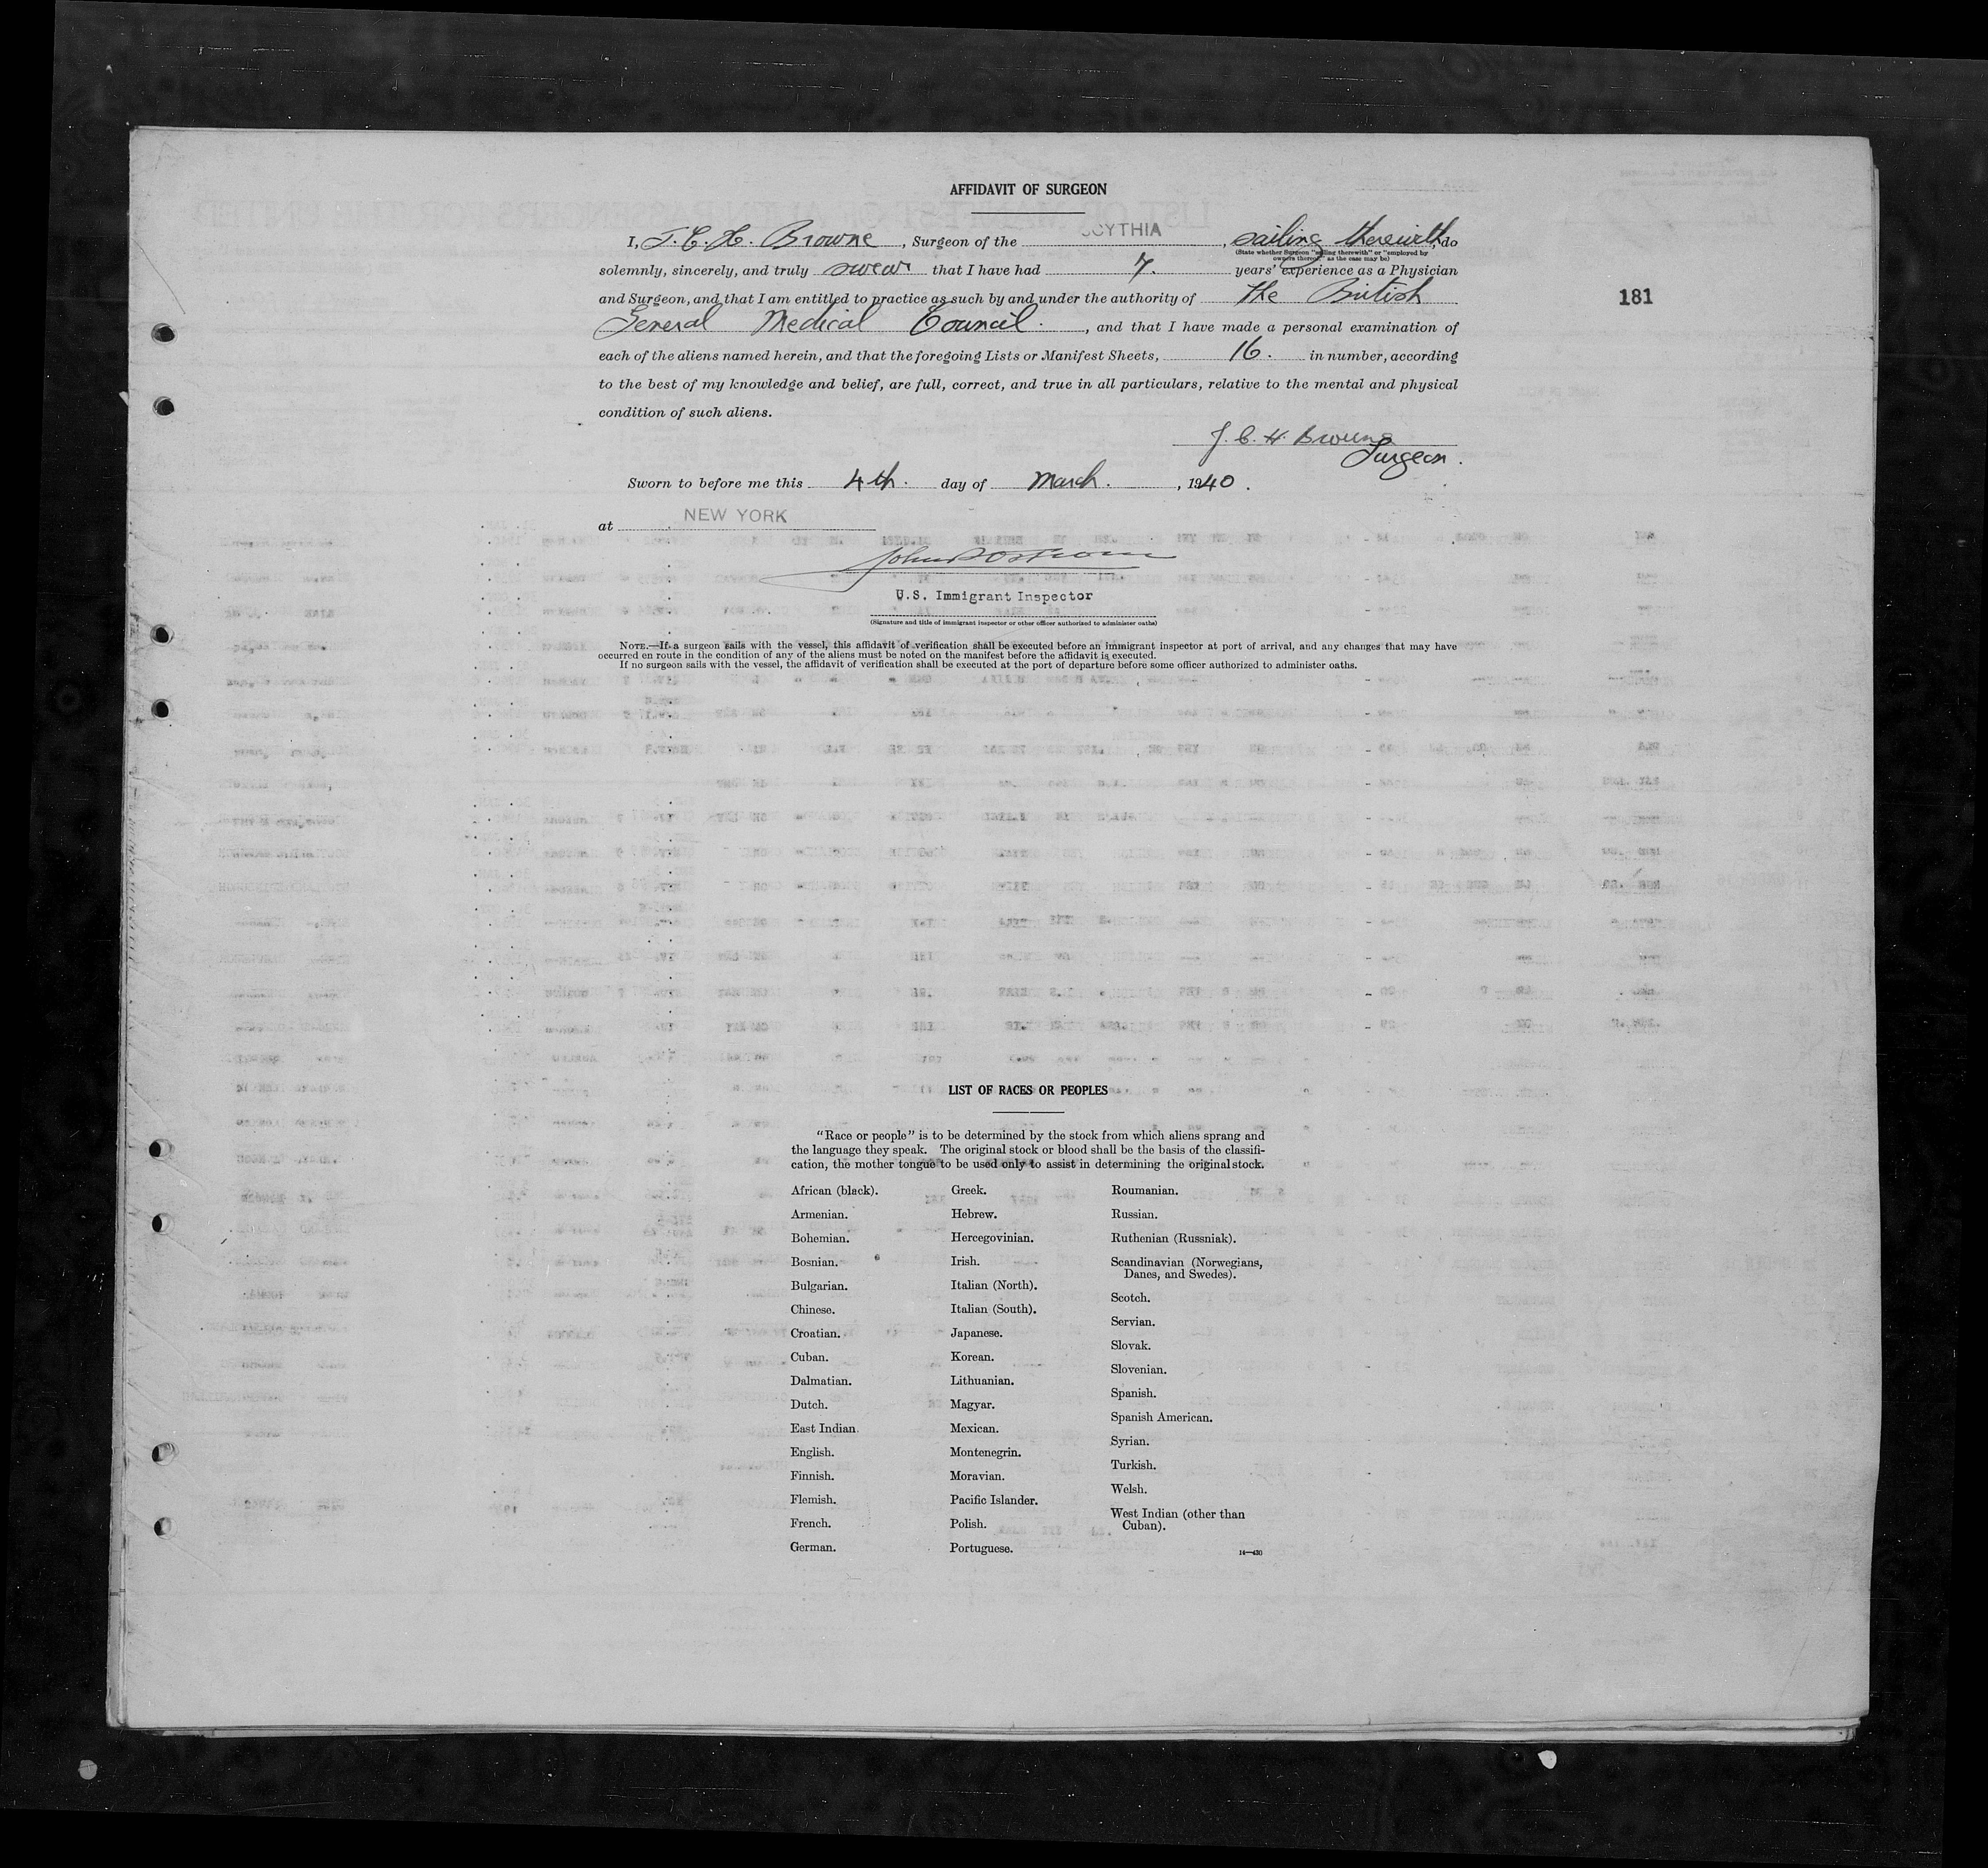 AFFIDAVIT OF SURGEON
I, J. C. H. Browne, Surgeon of the SCYTHIA, sailing therewith, do
(State whether Surgeon "sailing therewith" or "employed by
owners thereof," as the case may be)
solemnly, sincerely, and truly swear that I have had 7. years' experience as a Physician
and Surgeon, and that I am entitled to practice as such by and under the authority of the British
General Medical Council., and that I have made a personal examination of
each of the aliens named herein, and that the foregoing Lists or Manifest Sheets, 16. in number, according
to the best of my knowledge and belief, are full, correct, and true in all particulars, relative to the mental and physical
condition of such aliens.
181
J. C. H. Browne
Surgeon.
Sworn to before me this 4th. day of March., 1940.
at NEW YORK
U.S. Immigrant Inspector
(Signature and title of immigrant inspector or other officer authorized to administer oaths)
NOTE.—If a surgeon sails with the vessel, this affidavit of verification shall be executed before an immigrant inspector at port of arrival, and any changes that may have
occurred en route in the condition of any of the aliens must be noted on the manifest before the affidavit is executed.
If no surgeon sails with the vessel, the affidavit of verification shall be executed at the port of departure before some officer authorized to administer oaths.
LIST OF RACES OR PEOPLES
"Race or people" is to be determined by the stock from which aliens sprang and
the language they speak. The original stock or blood shall be the basis of the classifi-
cation, the mother tongue to be used only to assist in determining the original stock.
African (black).
Armenian.
Bohemian.
Bosnian.
Bulgarian.
Chinese.
Croatian.
Cuban.
Dalmatian.
Dutch.
East Indian.
English.
Finnish.
Flemish.
French.
German.
Greek.
Hebrew.
Hercegovinian.
Irish.
Italian (North).
Italian (South).
Japanese.
Korean.
Lithuanian.
Magyar.
Mexican.
Montenegrin.
Moravian.
Pacific Islander.
Polish.
Portuguese.
Roumanian.
Russian.
Ruthenian (Russniak).
Scandinavian (Norwegians,
Danes, and Swedes).
Scotch.
Servian.
Slovak.
Slovenian.
Spanish.
Spanish American.
Syrian.
Turkish.
Welsh.
West Indian (other than
Cuban).
14—430